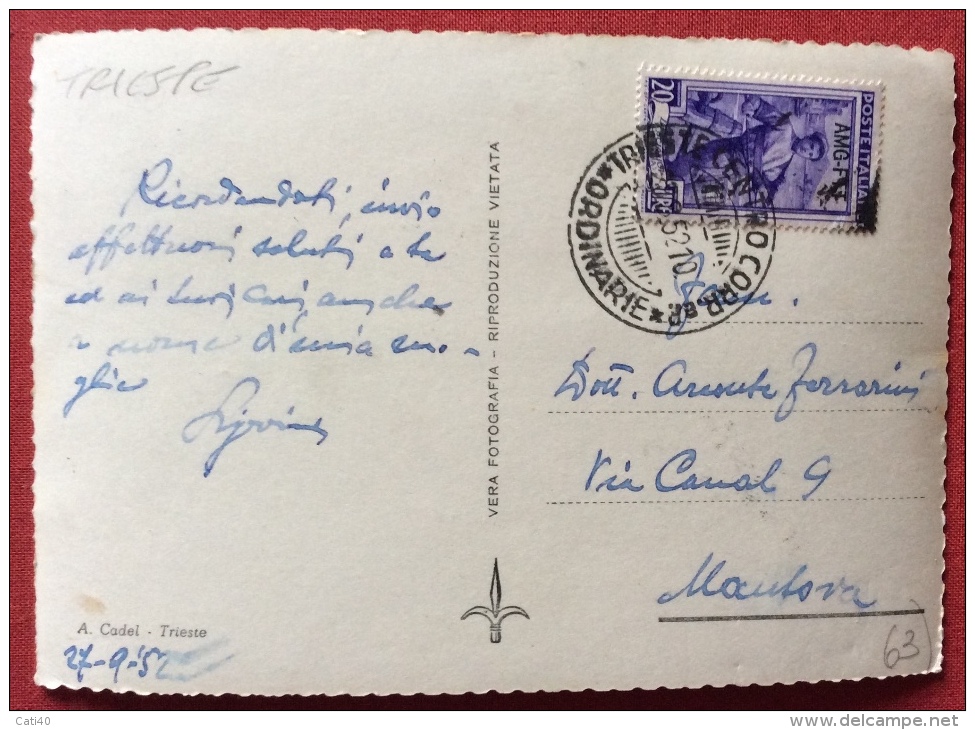 TRIESTE
Ricordandoti, invio
affettuosi saluti a te
ed ai tuoi cari anche
a nome di mia mo-
glie
VERA FOTOGRAFIA - RIPRODUZIONE VIETATA
A. Cadel - Trieste
27-9-52
20
LIRE
POSTE ITALIANE
AMG-F
TRIESTE CENTRO CORR. E P. ORDINARIE
52.10
Dott. Ferrarini
Via Canal 9
Mantova
63
Cati40
www.delcampe.net